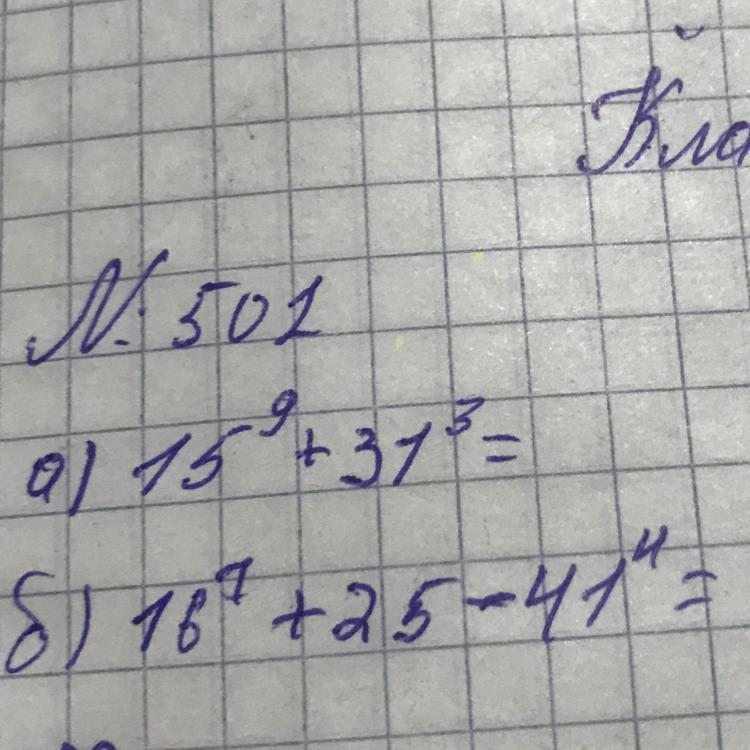 Кла
№ 501
а) 15⁹ + 31³ =
б) 16⁷ + 25 - 41⁴ =